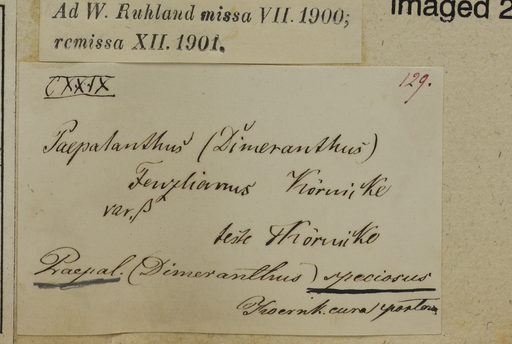 Ad W. Ruhland missa VII. 1900;
remissa XII. 1901.
Imaged 2
CXXIX
129.
Paepalanthus (Dimeranthus)
Fenzlianus Körnicke
var. β
teste Körnicke
Praepal. (Dimeranthus) speciosus
Koernik. cura